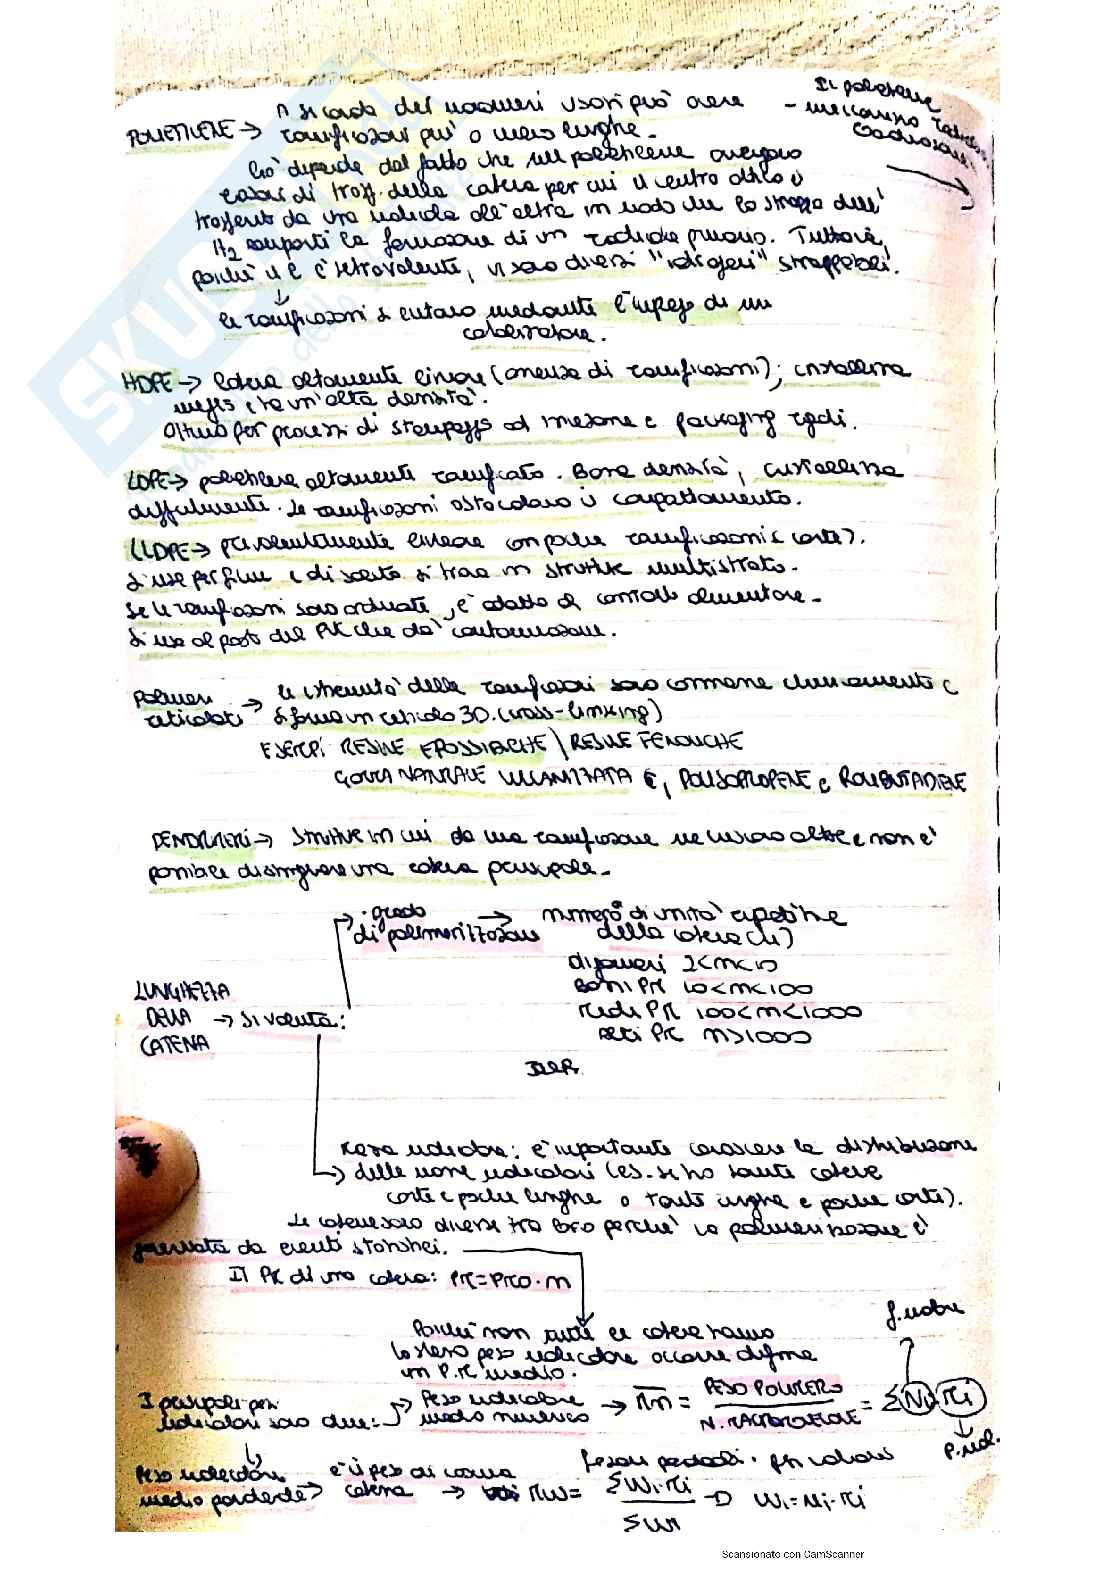 Il polietilene
- meccanismo
POLIETILENE → A seconda dei monomeri usati può avere
ramificazioni più o meno lunghe.
Ciò dipende dal fatto che nel polietilene avvengono
reazioni di trasf. della catena per cui il centro attivo è
trasferito da una molecola all'altra in modo che lo strappo dell'
H2 comporti la formazione di un radicale primario. Tuttavia,
poiché il C è tetravalente, vi sono diversi "idrogeni" strappabili.
le ramificazioni si evitano mediante l'impiego di un
catalizzatore.
HDPE → catena altamente lineare (assenza di ramificazioni), cristallizza
meglio e ha un'alta densità.
Ottimo per processi di stampaggio ad iniezione e packaging rigidi.
LDPE → polietilene altamente ramificato. Bassa densità, cristallizza
difficilmente. Le ramificazioni ostacolano il compattamento.
LLDPE → prevalentemente lineare con poche ramificazioni (e corte).
Si usa per film e di solito si trova in strutture multistrato.
Se le ramificazioni sono ordinate, è adatto al contatto alimentare.
Si usa al posto del PVC che dà contaminazione.
Polimeri → Le estremità delle ramificazioni sono connesse chimicamente e
reticolati si forma un reticolo 3D. (cross-linking)
ESEMPI RESINE EPOSSIDICHE \ RESINE FENOLICHE
GOMMA NATURALE VULCANIZZATA E, POLISOPROPENE e POLIBUTADIENE
DENDRIMERI → Strutture in cui da una ramificazione ne escono altre e non è
possibile distinguere una catena principale.
· grado → numero di unità ripetitive
di polimerizzazione della catena (n)
oligomeri 2<n<10
bassi PM 10<n<100
LUNGHEZZA medi PM 100<n<1000
DELLA → SI VALUTA:
CATENA alti PM n>1000
Massa molecolare: è importante conoscere la distribuzione
→ delle masse molecolari (es. se ho tante catene
corte e poche lunghe o tante lunghe e poche corte).
Le catene sono diverse tra loro perché la polimerizzazione è
governata da eventi statistici.
Il PM di una catena: PM = PM0 · n
Poiché non tutte le catene hanno
lo stesso peso molecolare occorre definire
un P.M. medio.
f. molare
I principali pesi → Peso molecolare → Mn = PESO POLIMERO / N. MACROMOLECOLE = ΣNi Mi
molecolari sono due: medio numerico
p. mol.
Peso molecolare è il peso di ciascuna
medio ponderale → catena → Mw = ΣWi·Mi / ΣWi → Wi = Ni·Mi
Scansionato con CamScanner